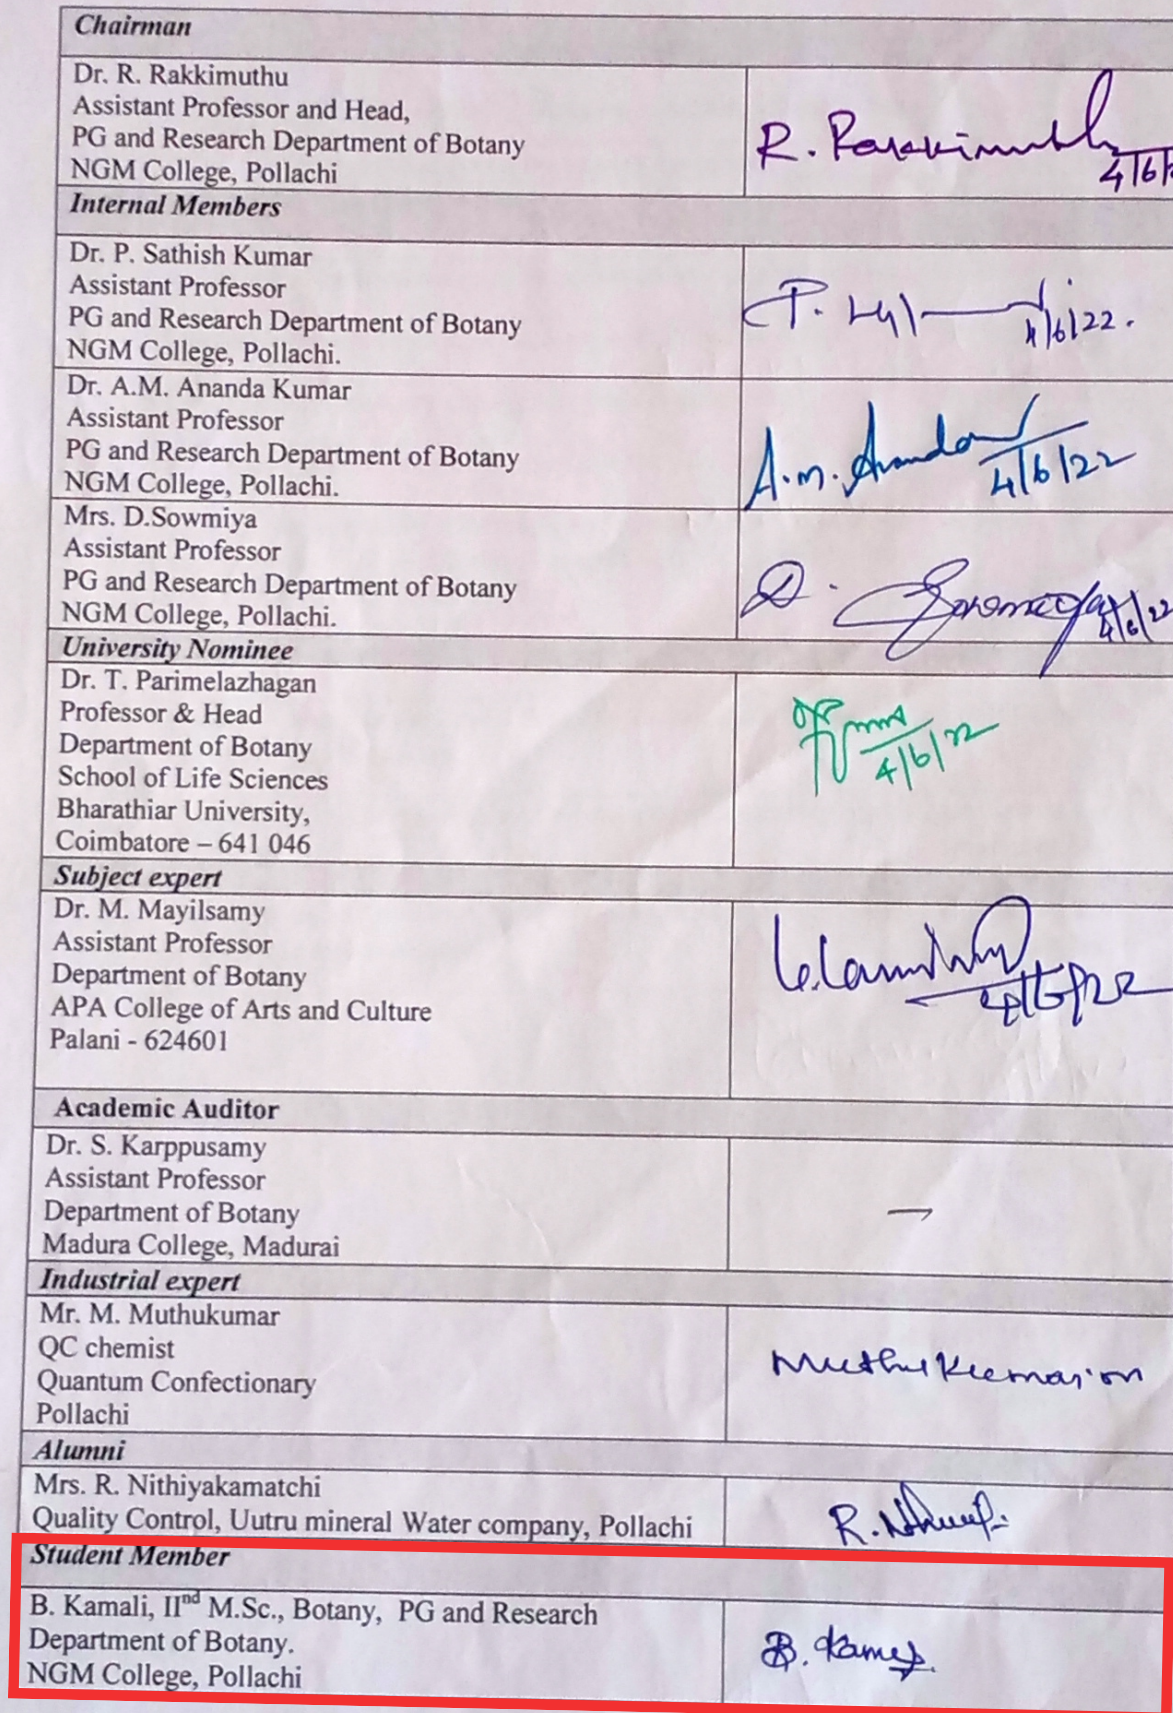 Chairman
Dr. R. Rakkimuthu
Assistant Professor and Head,
PG and Research Department of Botany
NGM College, Pollachi
R. Rakkimuthu
4/6/
Internal Members
Dr. P. Sathish Kumar
Assistant Professor
PG and Research Department of Botany
NGM College, Pollachi.
P.
4/6/22.
Dr. A.M. Ananda Kumar
Assistant Professor
PG and Research Department of Botany
NGM College, Pollachi.
A.M. Ananda
4/6/22
Mrs. D.Sowmiya
Assistant Professor
PG and Research Department of Botany
NGM College, Pollachi.
D. Sowmiya
4/6/22
University Nominee
Dr. T. Parimelazhagan
Professor & Head
Department of Botany
School of Life Sciences
Bharathiar University,
Coimbatore – 641 046
4/6/22
Subject expert
Dr. M. Mayilsamy
Assistant Professor
Department of Botany
APA College of Arts and Culture
Palani - 624601
Academic Auditor
Dr. S. Karppusamy
Assistant Professor
Department of Botany
Madura College, Madurai
—
Industrial expert
Mr. M. Muthukumar
QC chemist
Quantum Confectionary
Pollachi
Alumni
Mrs. R. Nithiyakamatchi
Quality Control, Uutru mineral Water company, Pollachi
R.
Student Member
B. Kamali, IInd M.Sc., Botany, PG and Research
Department of Botany.
NGM College, Pollachi
B.